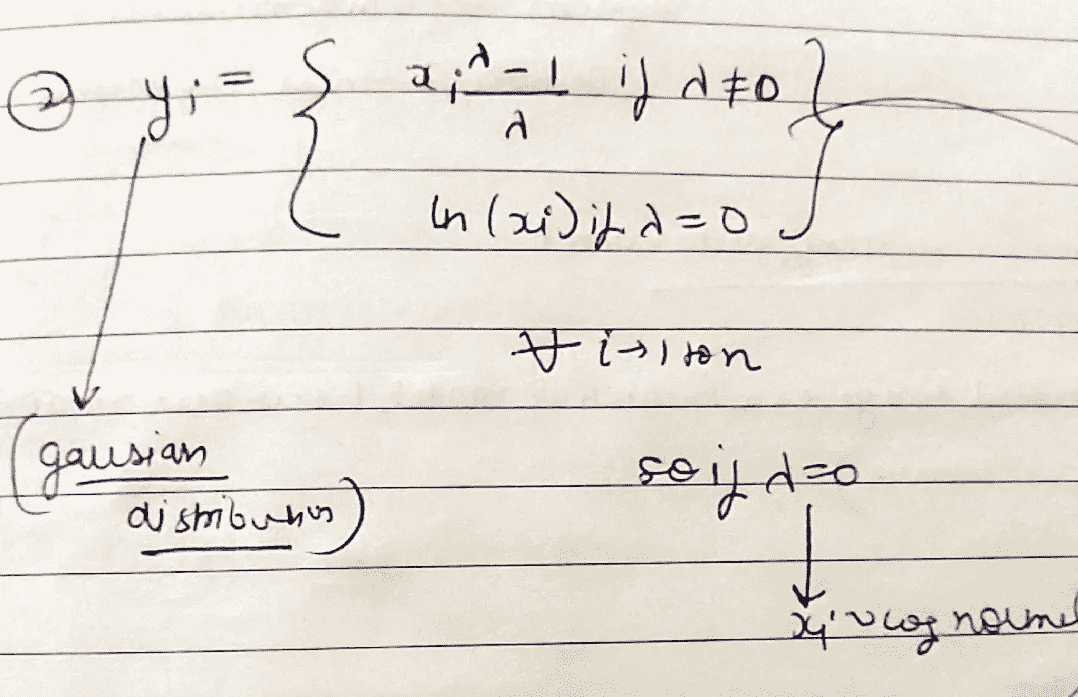 ② yi = { xi^λ - 1 / λ if λ ≠ 0
ln (xi) if λ = 0 }
∀ i → 1 to n
(gausian
distribution)
so if λ = 0
xi ~ log normal